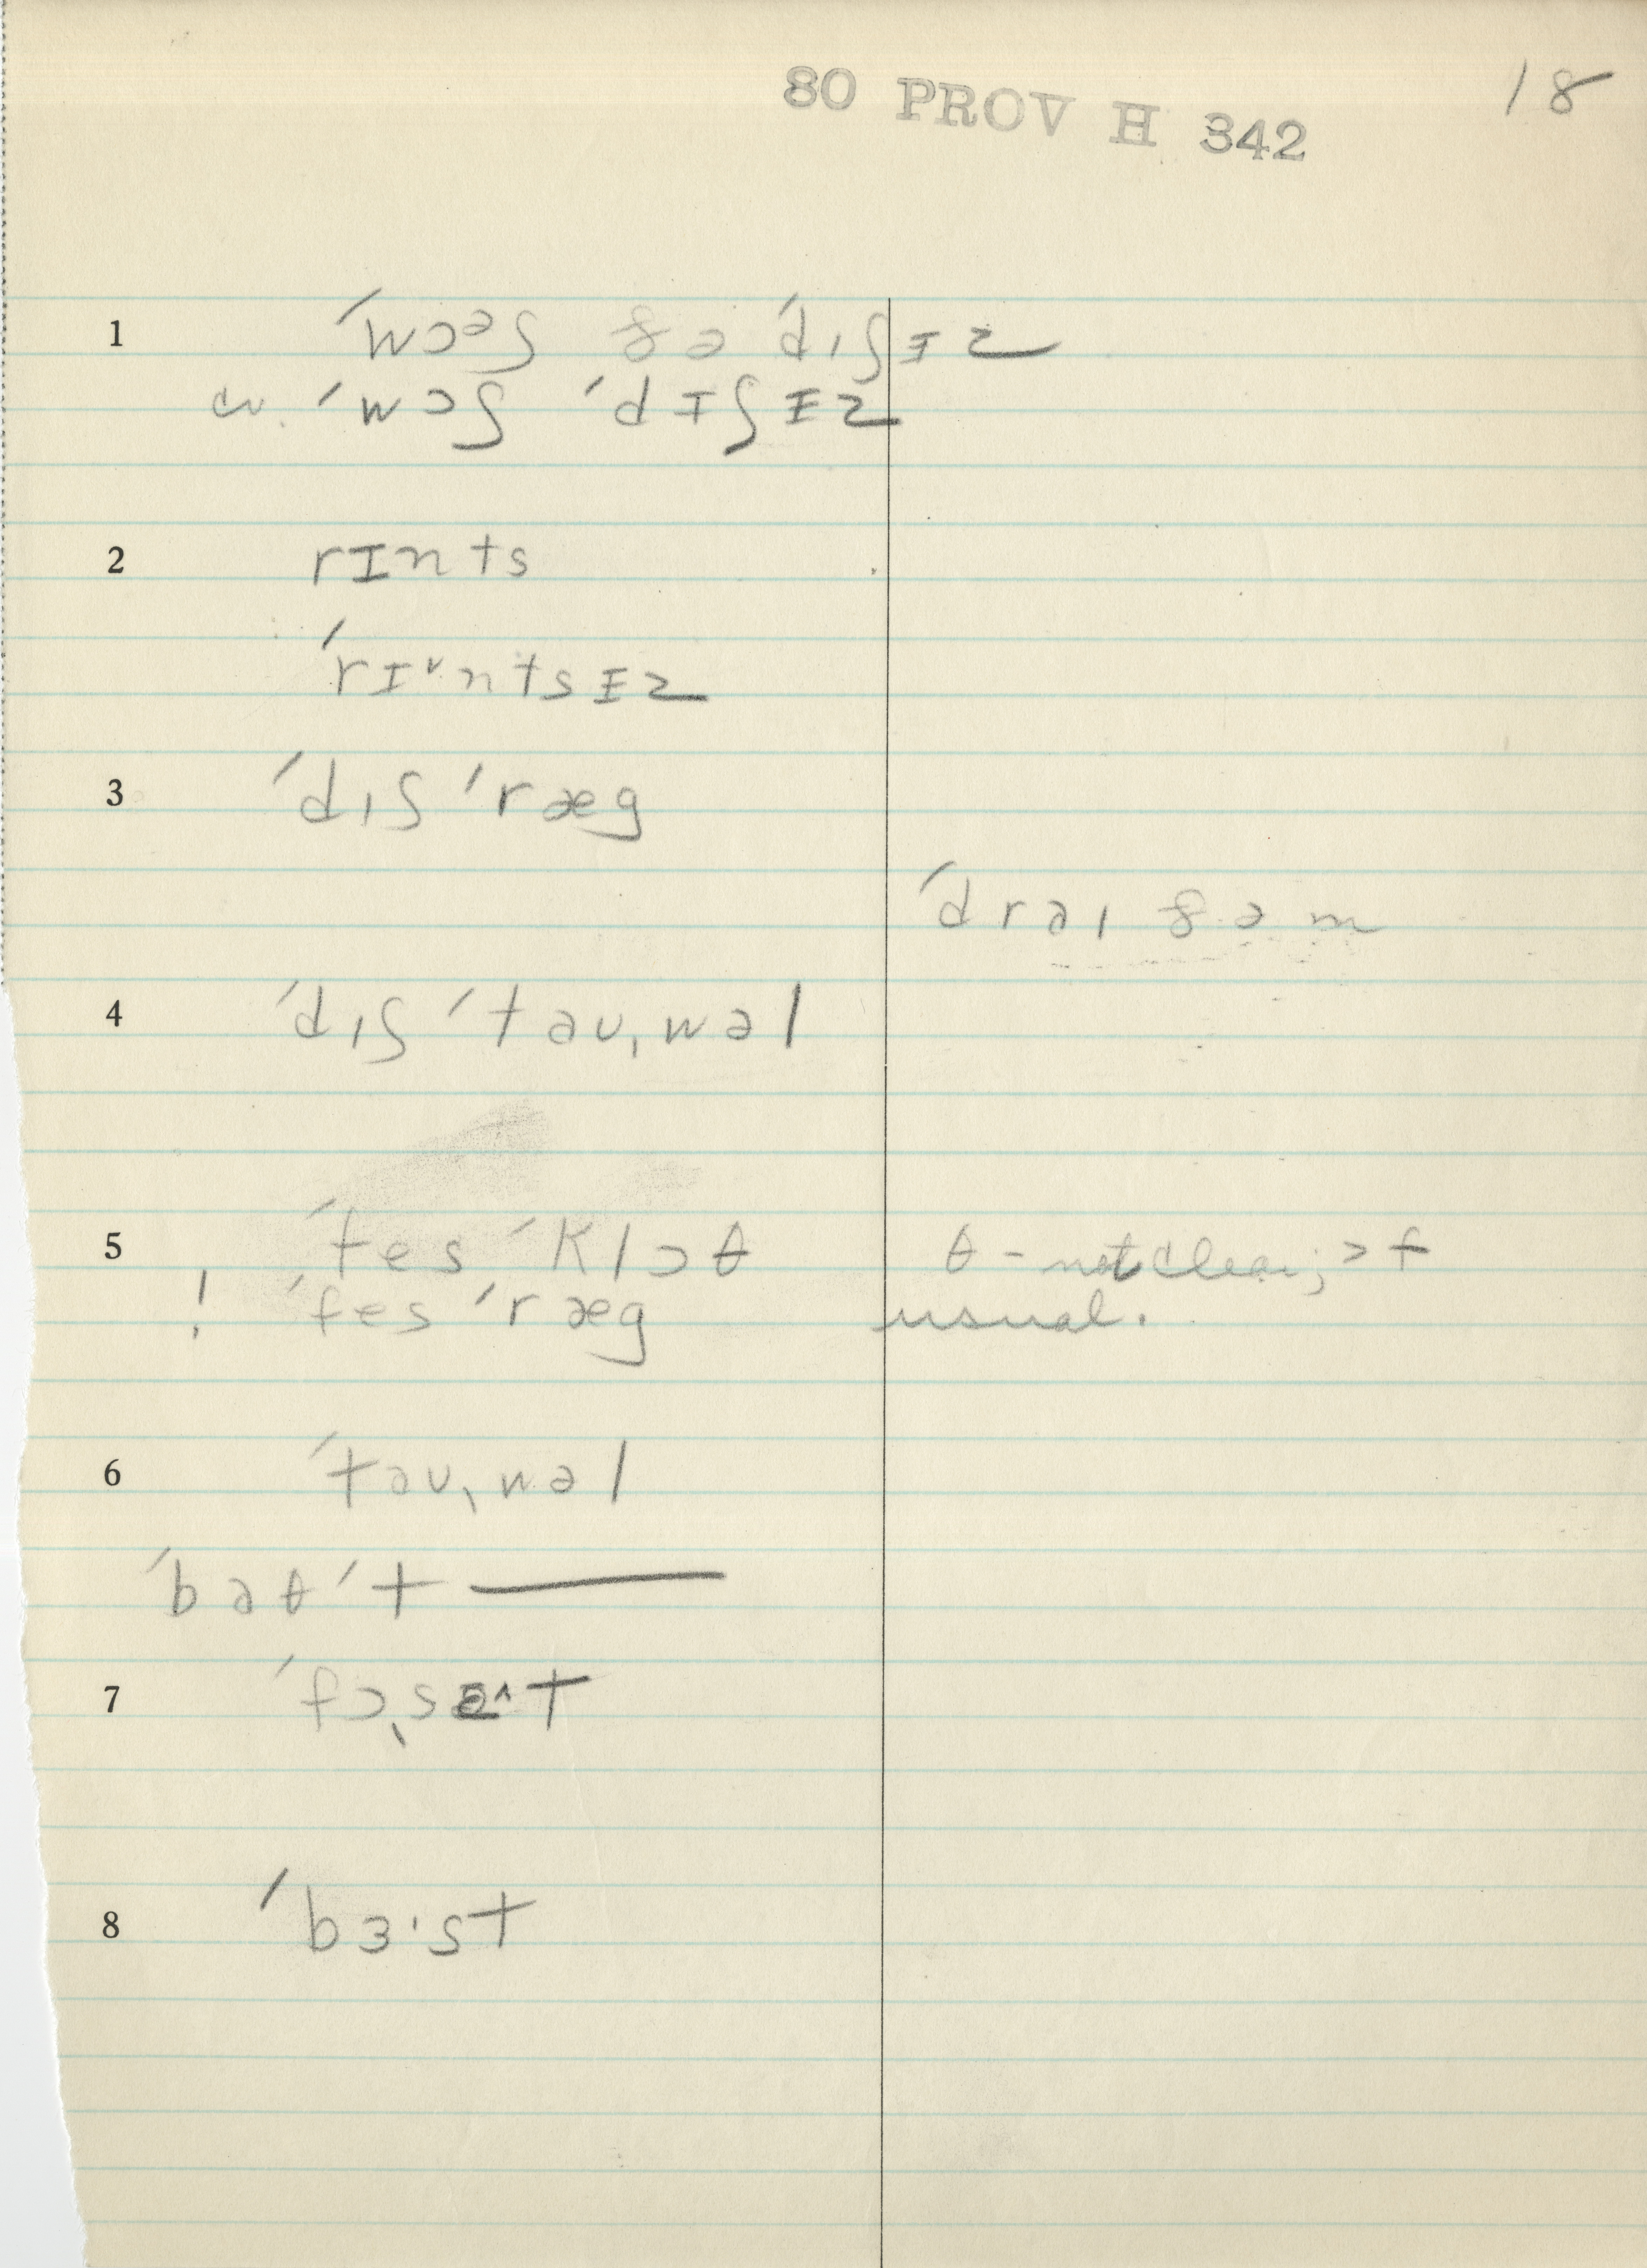 80 PROV H 342
18
1 ˈwɔᵊʃ ðə ˈdɪʃɪz
cv. ˈwɔʃ ˈdɪʃɪz
2 rɪnts
ˈrɪ˅ntsɪz
3 ˈdɪʃ ˈræg
ˈdraɪ ðəm
4 ˈdɪʃ ˈtaʊˌwəl
5 ˈfes ˈklɔθ θ - not clear; > f
! ˈfes ˈræg usual.
6 ˈtaʊˌwəl
ˈbaθ ˈt ——
7 ˈfɔˌsɪ^t
8 ˈbɜˑst